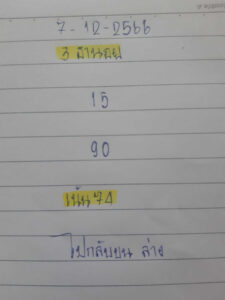 7-12-2566
15
90
เน้น 74
ไปกลับบน ล่าง